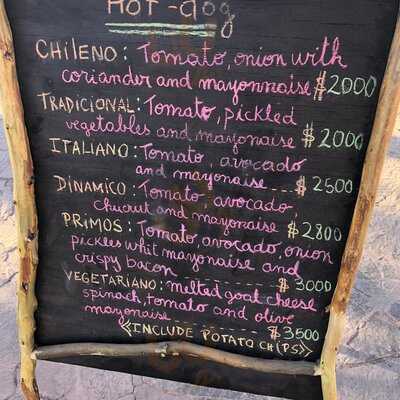 HOT-dog
CHILENO: Tomato, onion with
coriander and mayonnaise $2000
TRADICIONAL: Tomato, pickled
vegetables and mayonaise $2000
ITALIANO: Tomato, avocado
and mayonaise $2500
DINAMICO: Tomato, avocado,
chucrut and mayonaise $2.800
PRIMOS: Tomato, avocado, onion
pickles whit mayonaise and
crispy bacon $3000
VEGETARIANO: melted goat cheese
spinach, tomato and olive
mayonaise $3500
<<INCLUDE POTATO CHIPS>>